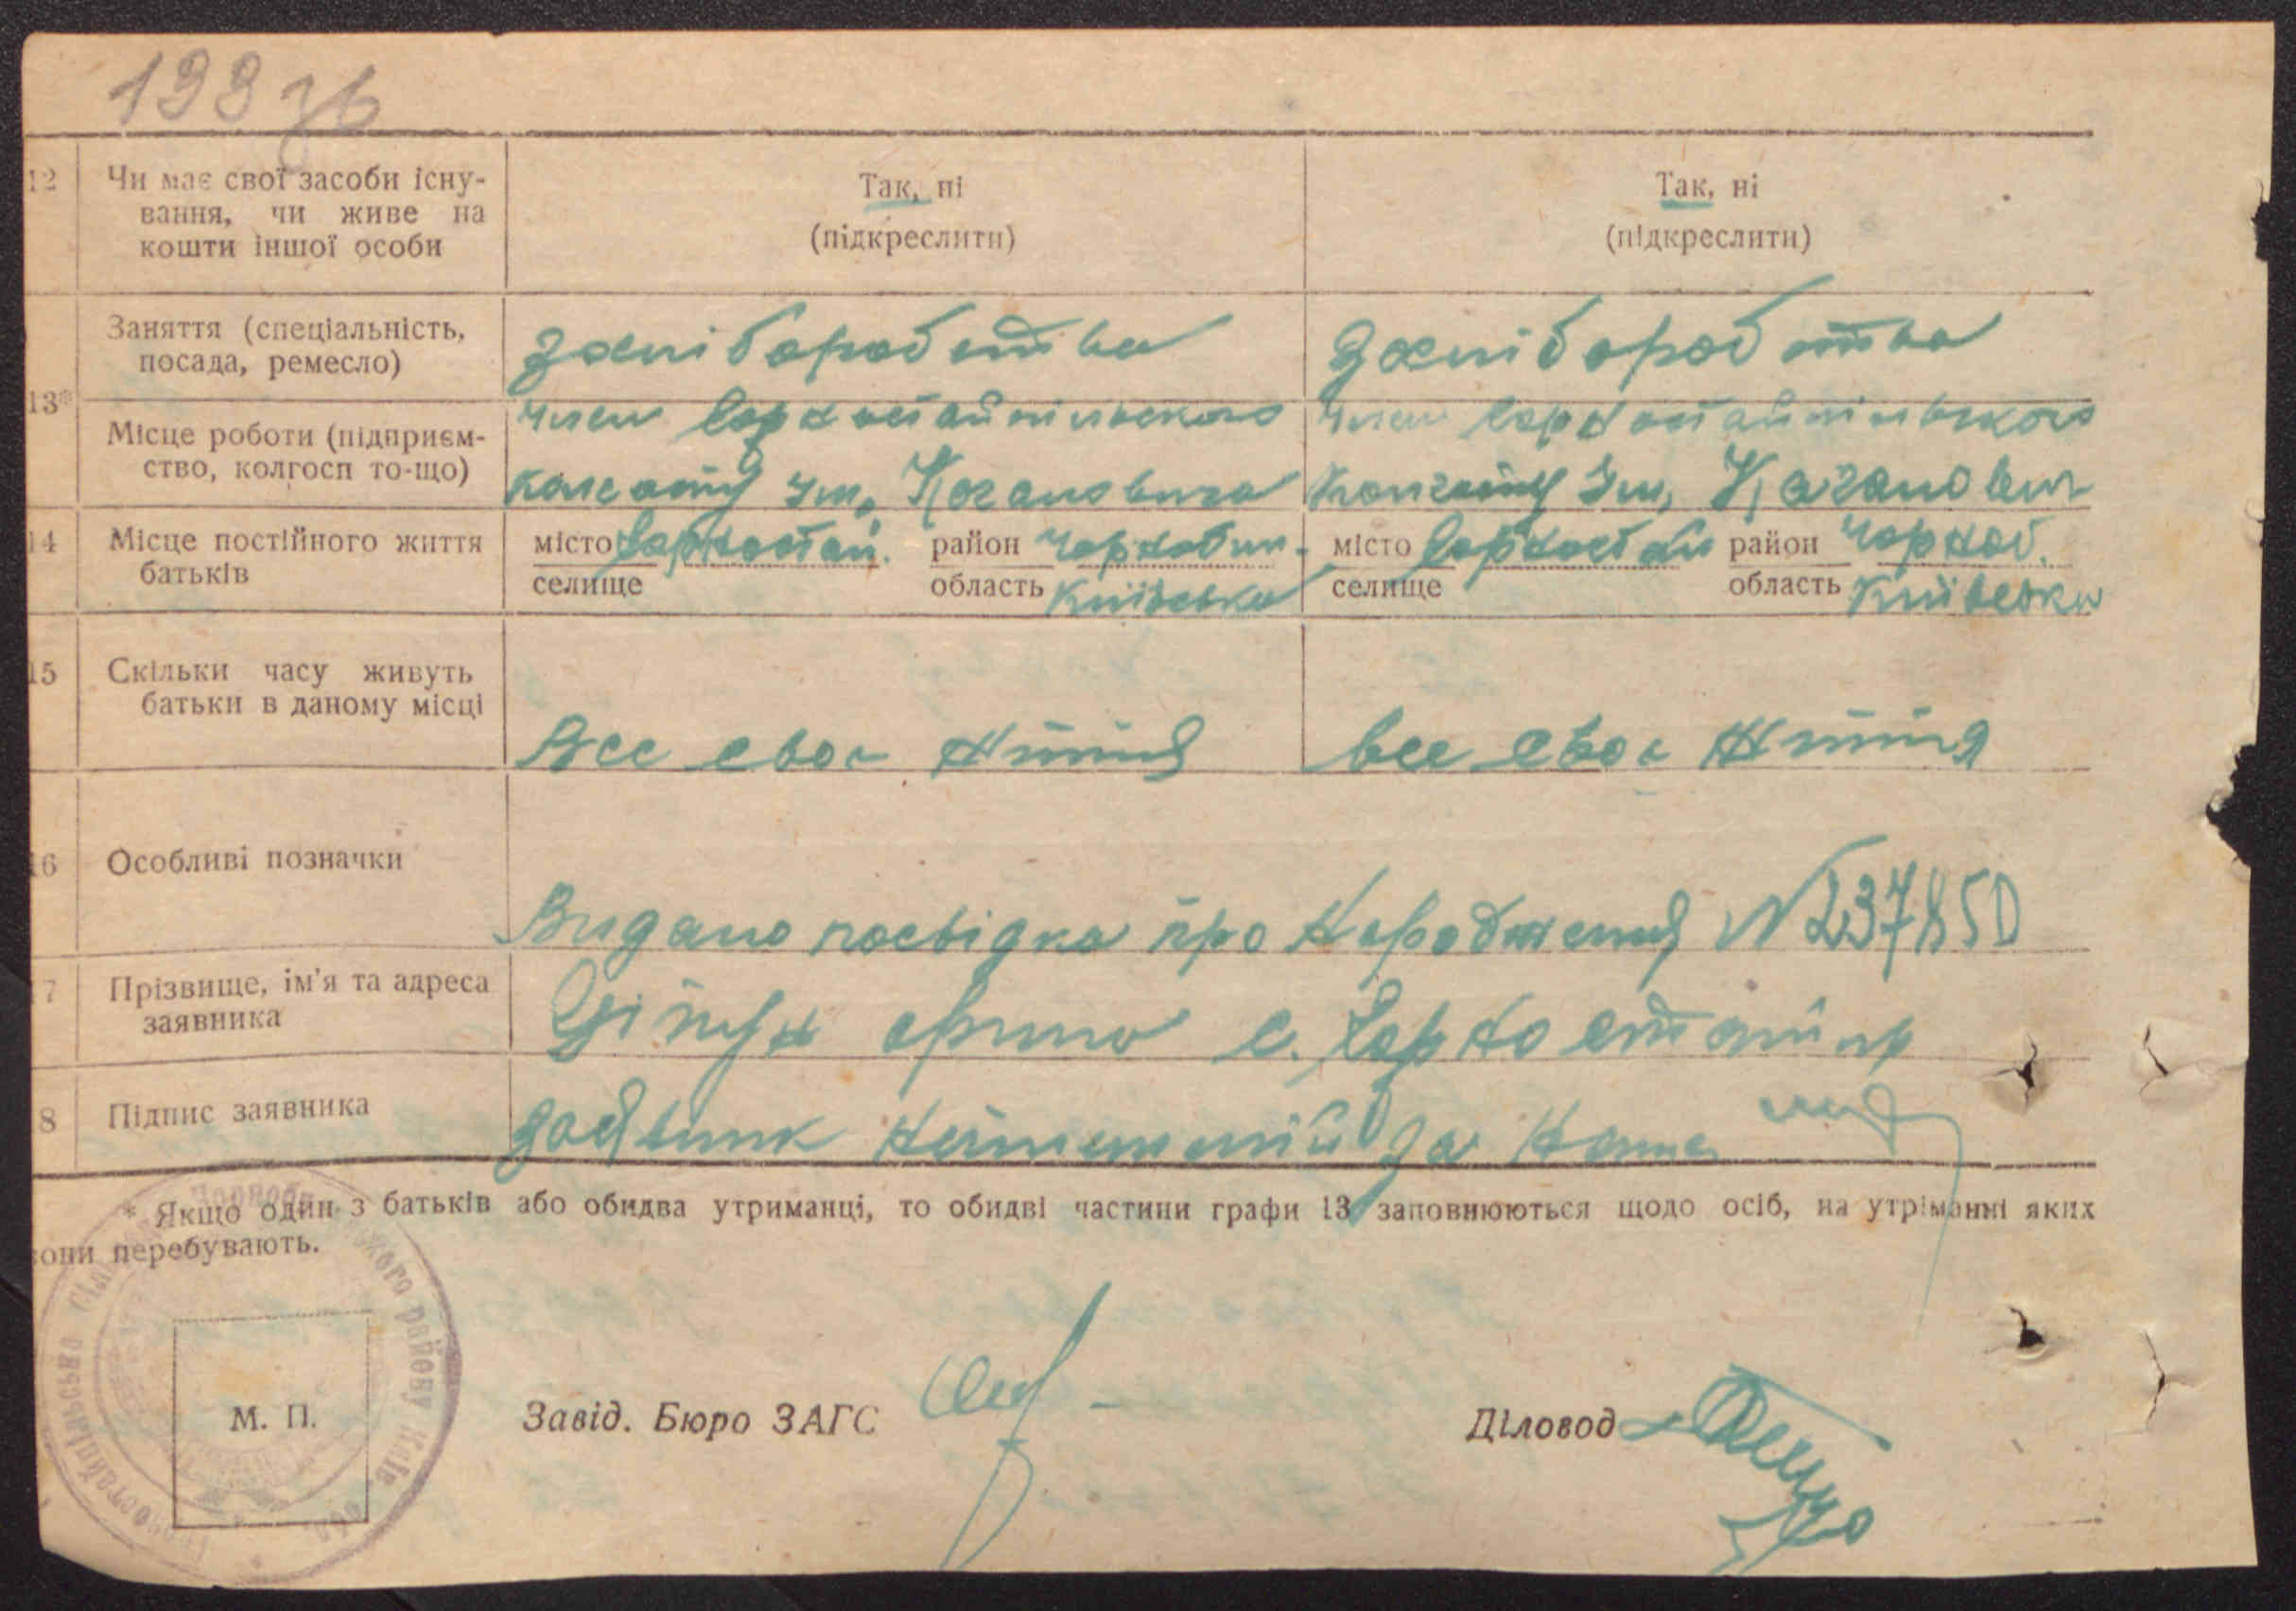 193 зв
12 Чи має свої засоби існу- Так, ні Так, ні
вання, чи живе на
кошти іншої особи (підкреслити) (підкреслити)
Заняття (спеціальність,
посада, ремесло) хліборобства хліборобства
13*
член Горностайпільского член Горностайпільского
Місце роботи (підприєм-
ство, колгосп то-що) колгоспу ім. Кагановича колгоспу ім. Каганович
14 Місце постійного життя місто Горностай. район Чорнобил. місто Горностай район Чорноб.
батьків селище область Київська селище область Київська
15 Скільки часу живуть
батьки в даному місці все своє життя все своє життя
16 Особливі позначки
Видано посвідка про народження N 237850
7 Прізвище, ім'я та адреса
заявника с. Горностайп
8 Підпис заявника заявник за
* Якщо один з батьків або обидва утриманці, то обидві частини графи 13 заповнюються щодо осіб, на утріманні яких
вони перебувають.
М. П. Завід. Бюро ЗАГС Діловод